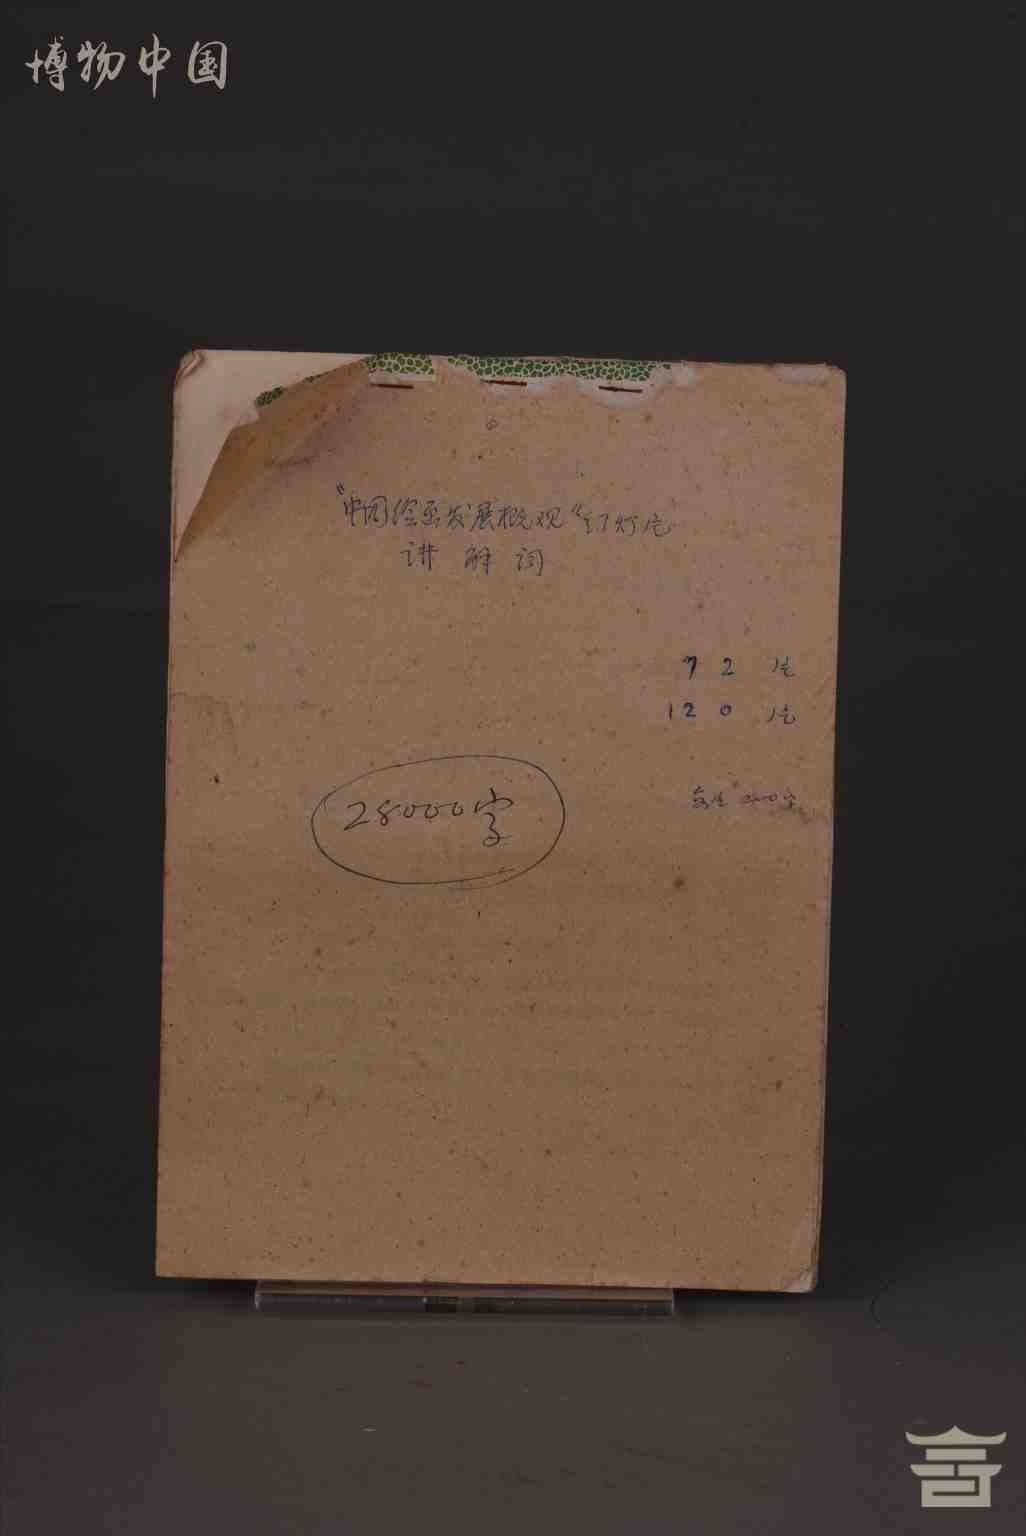 博物中国
"中国绘画发展概观"幻灯片
讲解词
72片
120片
28000字